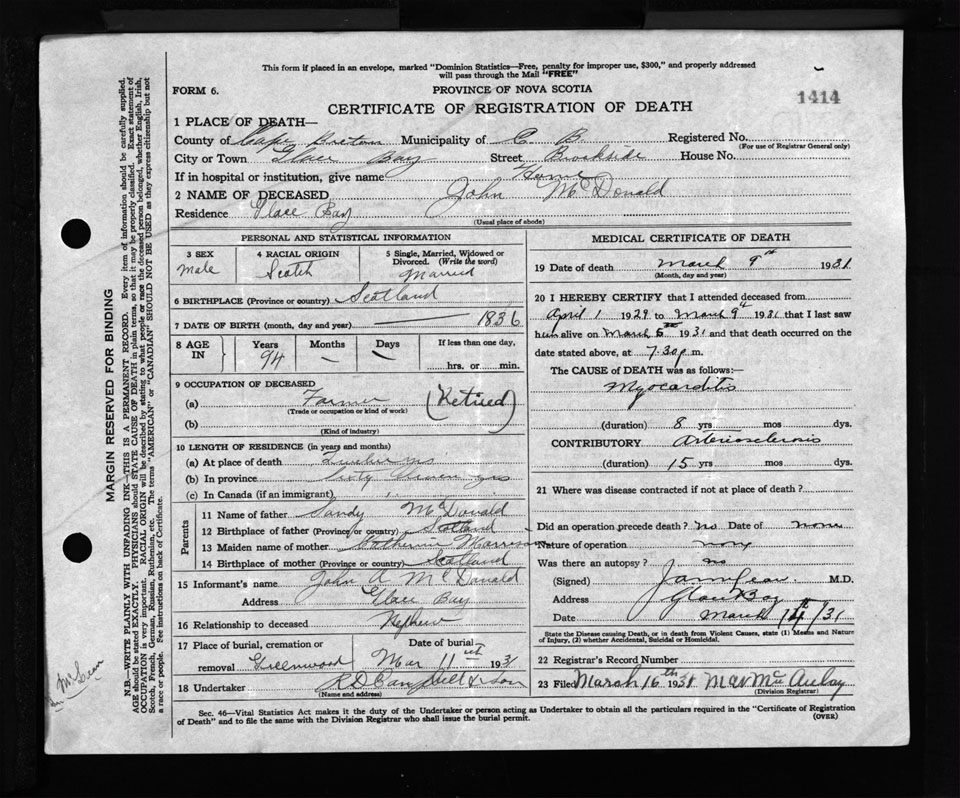 This form if placed in an envelope, marked "Dominion Statistics—Free, penalty for improper use, $300," and properly addressed
will pass through the Mail "FREE"
FORM 6. PROVINCE OF NOVA SCOTIA
CERTIFICATE OF REGISTRATION OF DEATH 1414
1 PLACE OF DEATH—
County of Cape Breton Municipality of C B Registered No.
(For use of Registrar General only)
City or Town Glace Bay Street Brookside House No.
If in hospital or institution, give name Home
2 NAME OF DECEASED John McDonald
Residence Glace Bay
(Usual place of abode)
PERSONAL AND STATISTICAL INFORMATION
3 SEX 4 RACIAL ORIGIN 5 Single, Married, Widowed or
Divorced. (Write the word)
Male Scotch Married
6 BIRTHPLACE (Province or country) Scotland
7 DATE OF BIRTH (month, day and year) — 1836
8 AGE IN Years Months Days If less than one day,
94 — — hrs. or min.
9 OCCUPATION OF DECEASED
(a) Farmer (Retired)
(Trade or occupation or kind of work)
(b)
(Kind of industry)
10 LENGTH OF RESIDENCE (in years and months)
(a) At place of death yrs
(b) In province Sixty seven yrs
(c) In Canada (if an immigrant)
Parents
11 Name of father Sandy McDonald
12 Birthplace of father (Province or country) Scotland
13 Maiden name of mother Catherine Morrison
14 Birthplace of mother (Province or country) Scotland
15 Informant's name John A McDonald
Address Glace Bay
16 Relationship to deceased Nephew
17 Place of burial, cremation or Date of burial
removal Greenwood Mar 11 1931
18 Undertaker R D Campbell & Son
(Name and address)
MEDICAL CERTIFICATE OF DEATH
19 Date of death March 9th 1931
(Month, day and year)
20 I HEREBY CERTIFY that I attended deceased from
April 1 1929 to March 9th 1931 that I last saw
him alive on March 6th 1931 and that death occurred on
date stated above, at 7.30 p.m.
The CAUSE of DEATH was as follows:—
Myocarditis
(duration) 8 yrs mos dys.
CONTRIBUTORY Arteriosclerosis
(duration) 15 yrs mos dys.
21 Where was disease contracted if not at place of death?
Did an operation precede death? no Date of none
Nature of operation none
Was there an autopsy? no
(Signed) M.D.
Address Glace Bay
Date March 14th/31
State the Disease causing Death, or in death from Violent Causes, state (1) Means and Nature
of Injury, (2) whether Accidental, Suicidal or Homicidal.
22 Registrar's Record Number
23 Filed March 16th 1931 MacAulay
(Division Registrar)
Sec. 46—Vital Statistics Act makes it the duty of the Undertaker or person acting as Undertaker to obtain all the particulars required in the "Certificate of Registration
of Death" and to file the same with the Division Registrar who shall issue the burial permit. (OVER)
MARGIN RESERVED FOR BINDING
N.B.—WRITE PLAINLY WITH UNFADING INK—THIS IS A PERMANENT RECORD. Every item of information should be carefully supplied.
AGE should be stated EXACTLY. PHYSICIANS should STATE CAUSE OF DEATH in plain terms, so that it may be properly classified. Exact statement of
OCCUPATION is very important. RACIAL ORIGIN will be described by stating to what people or race the deceased person belonged, whether English, Irish,
Scotch, French, German, Russian, Ruthenian, etc. The terms "AMERICAN" or "CANADIAN" SHOULD NOT BE USED as they express citizenship but not
a race or people. See instructions on back of Certificate.